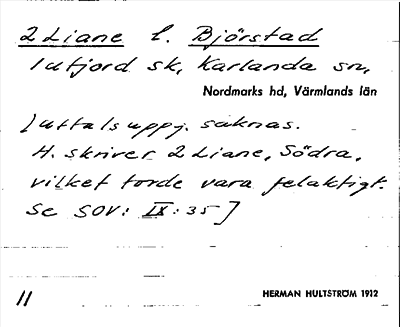 2 Liane l. Björstad
lutfjord sk, Karlanda sn,
Nordmarks hd, Värmlands län
[uttalsuppg. saknas.
H. skriver 2 Liane, Södra,
vilket torde vara felaktigt.
Se SOV: IX: 35]
11
HERMAN HULTSTRÖM 1912